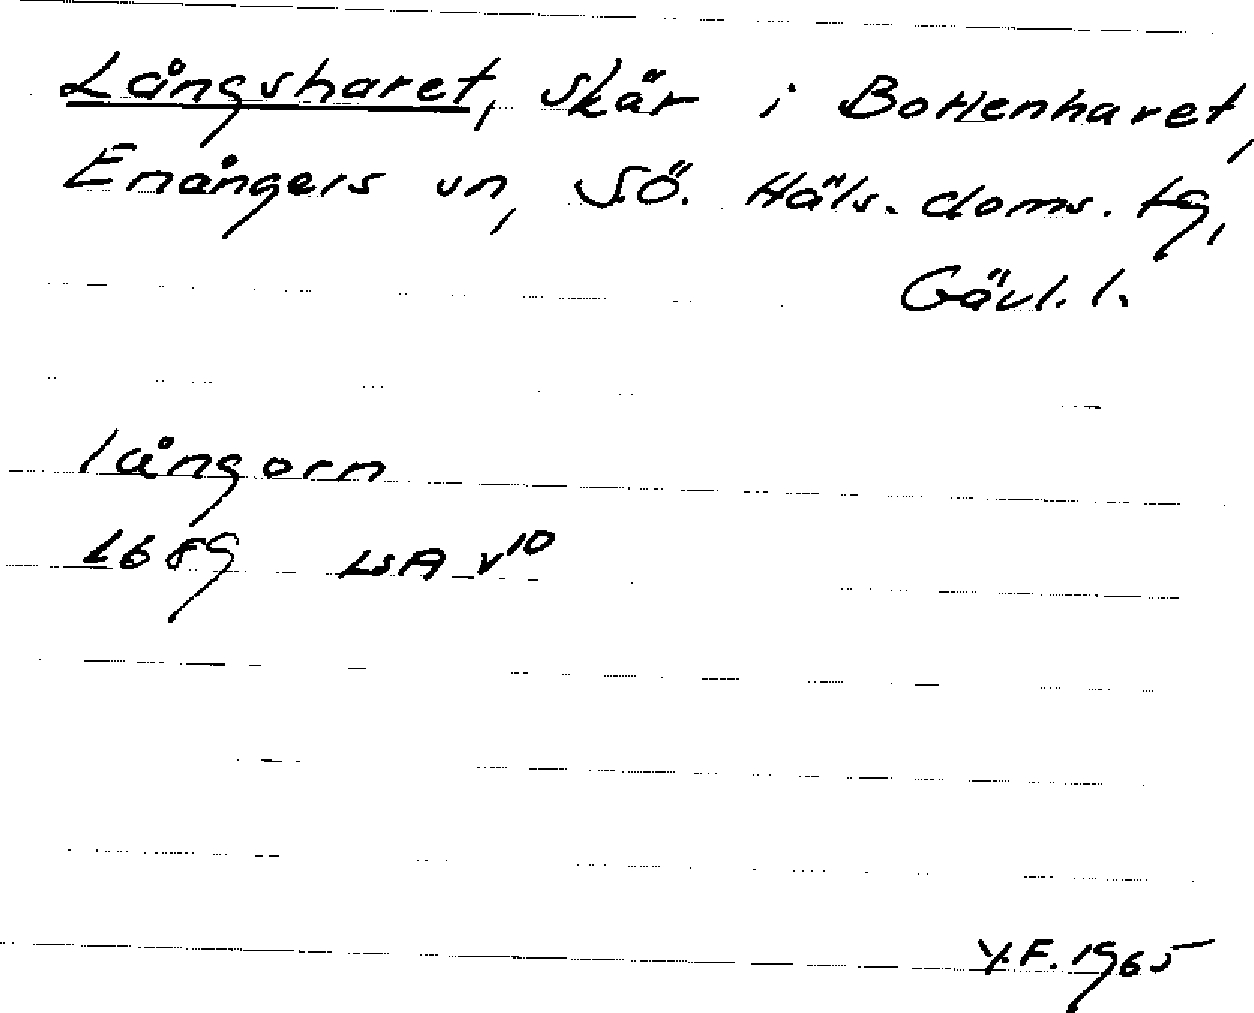 Långsharet, skär i Bottenharet,
Enångers sn, SÖ. Häls. doms. tg,
Gävl. l.
långorn
1689 LSA v10
Y.F. 1965